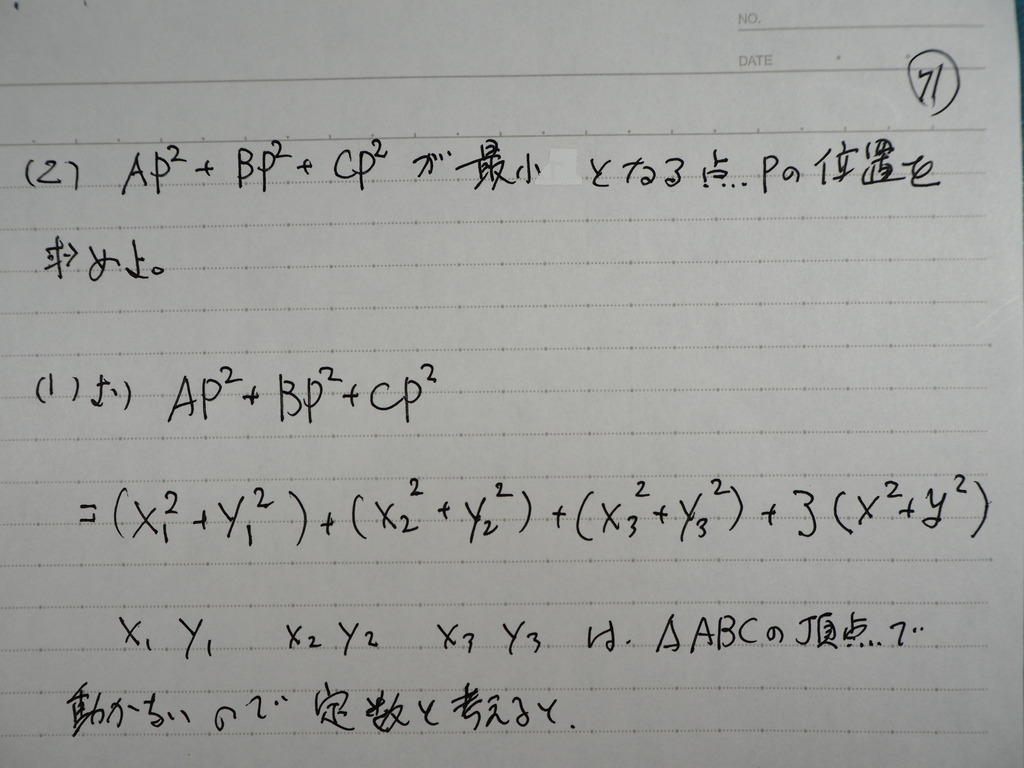 NO.
DATE
71
(2) AP²+BP²+CP² が最小となる点Pの位置を
求めよ。
(1)より AP²+BP²+CP²
=(X₁²+Y₁²)+(X₂²+Y₂²)+(X₃²+Y₃²)+3(X²+y²)
X₁ Y₁ X₂ Y₂ X₃ Y₃ は、△ABCの頂点で
動かないので定数と考えると、